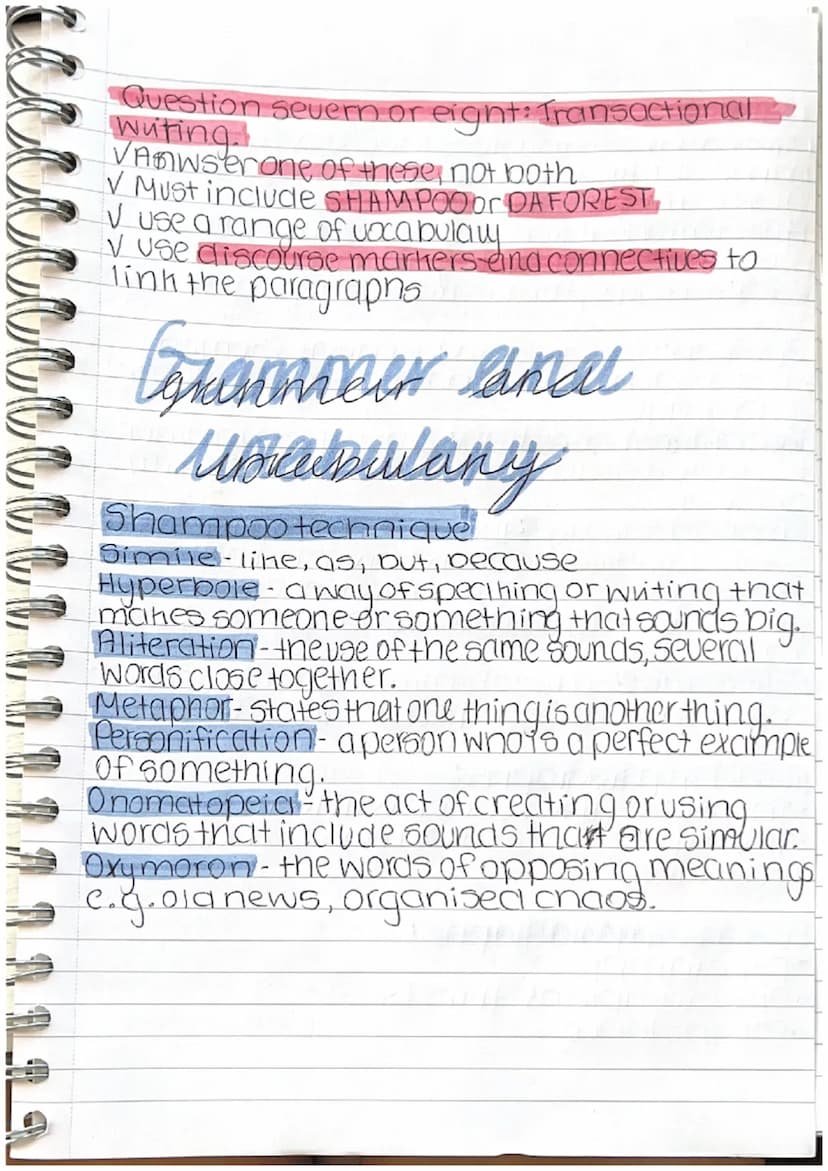 Question severn or eight: Transactional
writing.
√ Anwser one of these, not both
√ Must include SHAMPOO or DAFOREST
√ use a range of vocabulary
√ use discourse markers and connectives to
link the paragraphs
Grammer and
vocabulary
Shampoo technique
Simile - like, as, but, because
Hyperbole - a way of speaking or writing that
makes someone or something that sounds big.
Aliteration - the use of the same sounds, several
words close together.
Metaphor - states that one thing is another thing.
Personification - a person who is a perfect example
of something.
Onomatopeia - the act of creating or using
words that include sounds that are simular.
Oxymoron - the words of opposing meanings
e.g. old news, organised chaos.